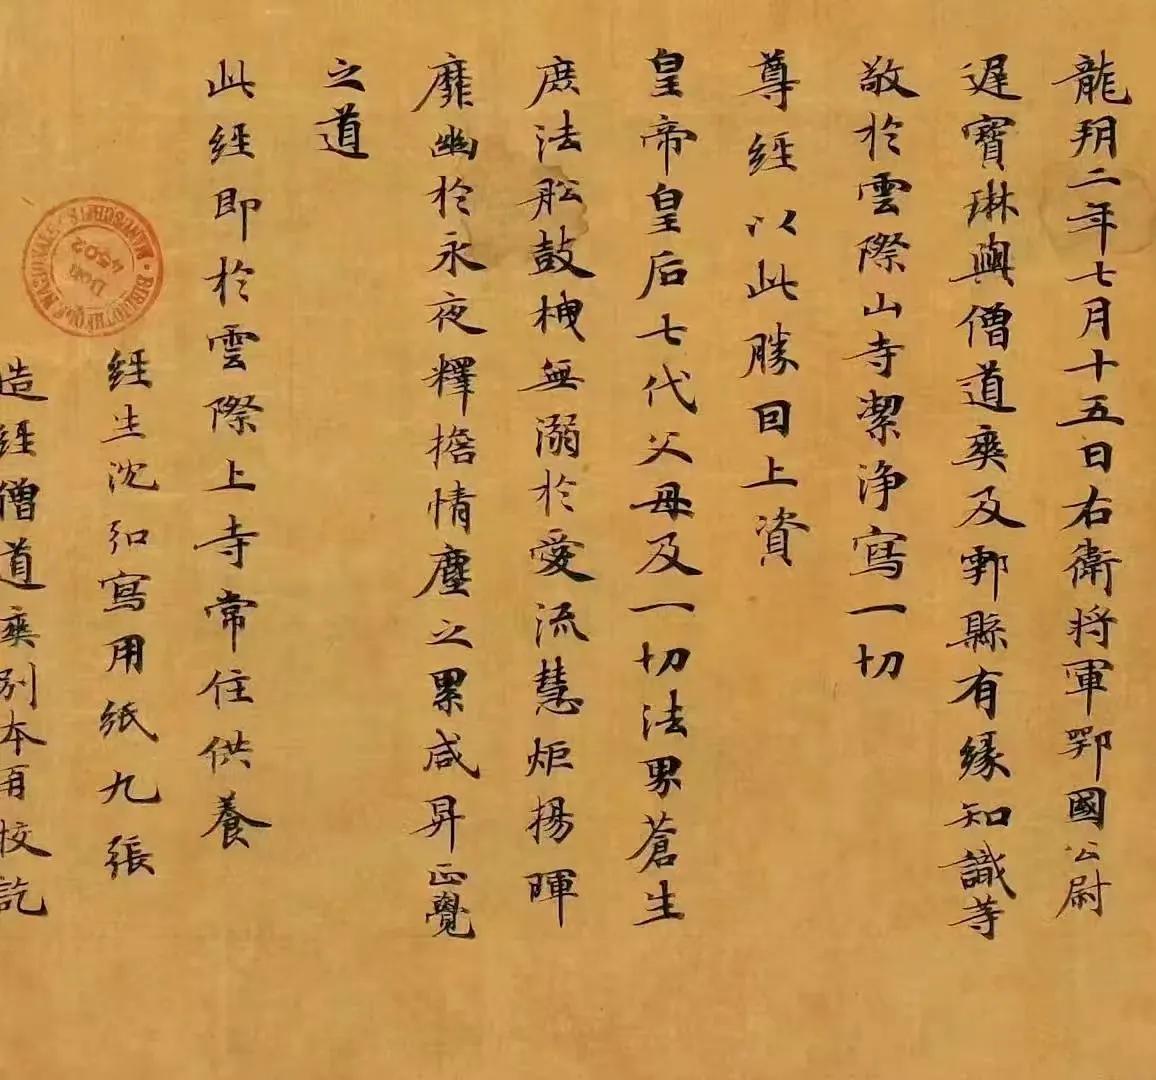 龍朔二年七月十五日右衛将軍鄂國公尉
遅寶琳與僧道爽及鄠縣有縁知識等
敬於雲際山寺潔浄寫一切
尊經以此勝因上資
皇帝皇后七代父母及一切法界蒼生
庶法舩鼓枻無溺於愛流慧炬揚暉
靡幽於永夜釋擔情塵之累咸昇正覺
之道
此經即於雲際上寺常住供養
經生沈弘寫用紙九張
造經僧道爽別本再校訖
BIBLIOTHÈQUE NATIONALE · MANUSCRITS
Don
4502